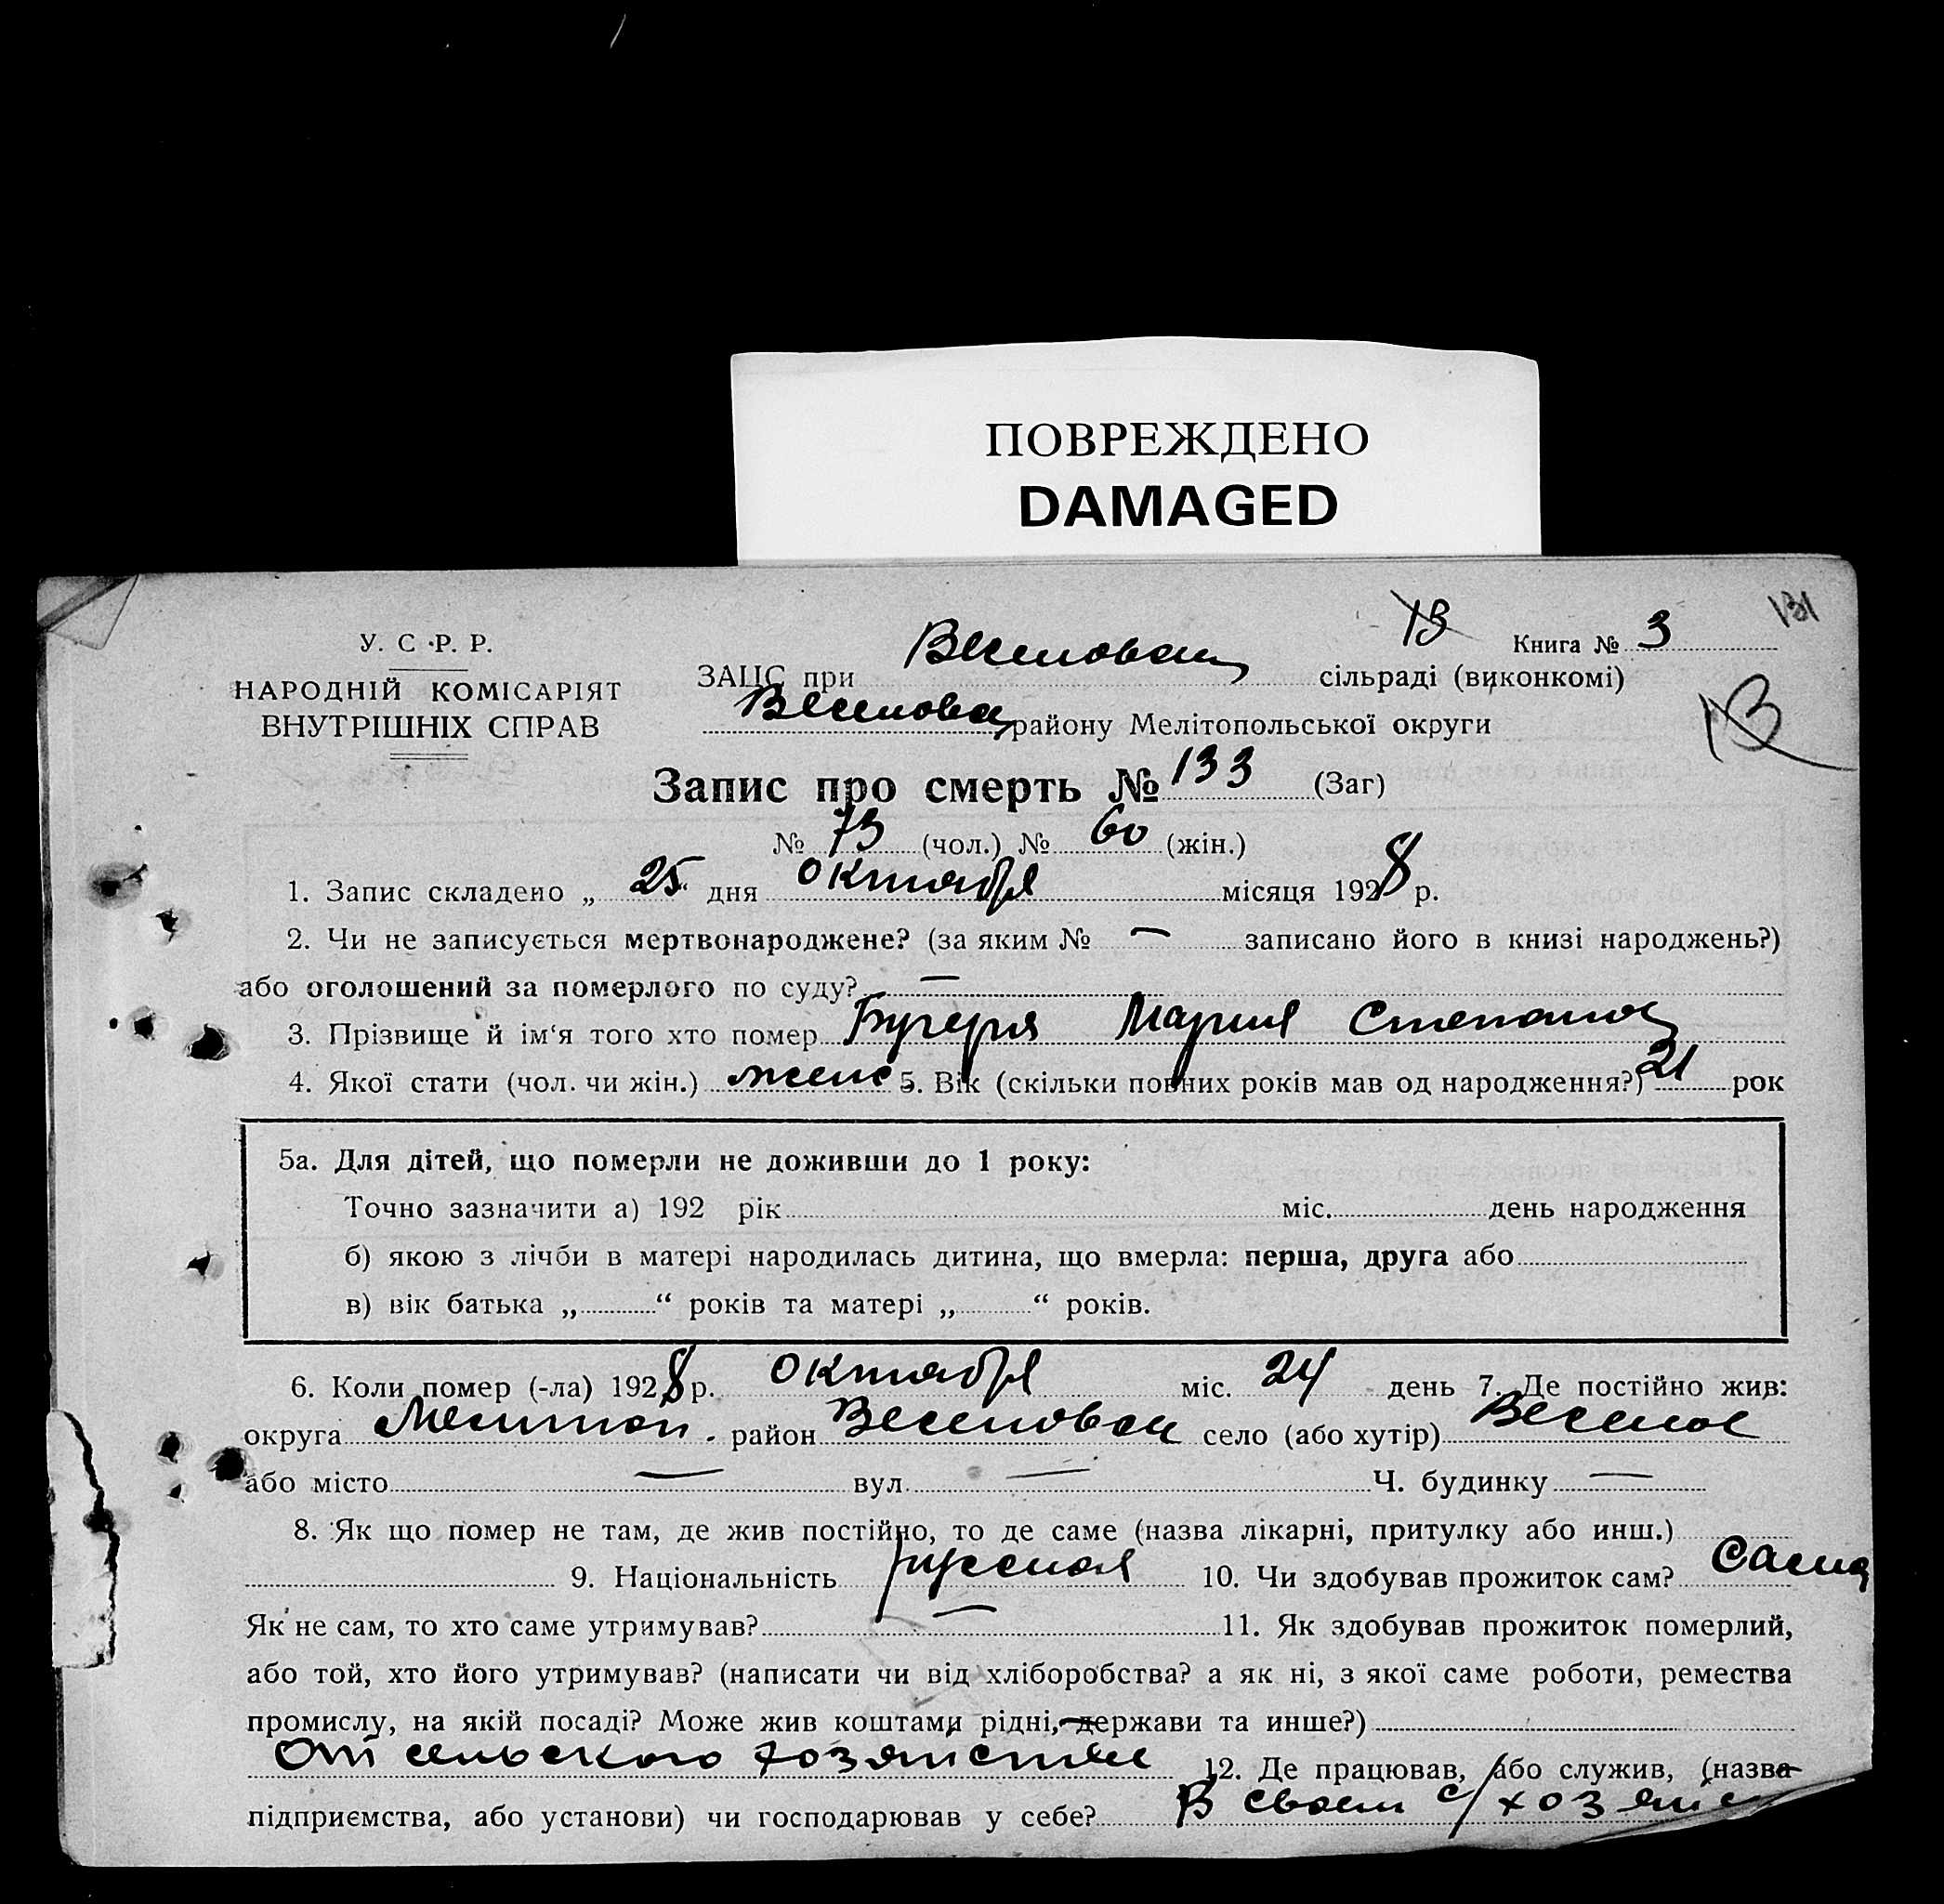 ПОВРЕЖДЕНО
DAMAGED
131
13 Книга № 3
У. С. Р. Р.
НАРОДНІЙ КОМІСАРІЯТ
ВНУТРІШНІХ СПРАВ
ЗАЦС при Веселовск сільраді (виконкомі)
Веселовск району Мелітопольської округи
13
Запис про смерть № 133 (Заг)
№ 73 (чол.) № 60 (жін.)
1. Запис складено „ 25 дня октября місяця 1928 р.
2. Чи не записується мертвонароджене? (за яким № — записано його в книзі народжень?)
або оголошений за померлого по суду? —
3. Прізвище й ім‘я того хто помер Бугеря Мария Степанов
4. Якої стати (чол. чи жін.) женс 5. Вік (скільки повних років мав од народження?) 21 рок
5а. Для дітей, що померли не доживши до 1 року:
Точно зазначити а) 192 рік міс. день народження
б) якою з лічби в матері народилась дитина, що вмерла: перша, друга або
в) вік батька „ “ років та матері „ “ років.
6. Коли помер (-ла) 1928 р. октября міс. 24 день 7. Де постійно жив:
округа Мелитоп. район Веселовск село (або хутір) Веселое
або місто — вул. — Ч. будинку —
8. Як що помер не там, де жив постійно, то де саме (назва лікарні, притулку або инш.)
9. Національність русская 10. Чи здобував прожиток сам? Сама
Як не сам, то хто саме утримував? — 11. Як здобував прожиток померлий,
або той, хто його утримував? (написати чи від хліборобства? а як ні, з якої саме роботи, ремества
промислу, на якій посаді? Може жив коштами рідні, держави та инше?)
От сельского хозяйства 12. Де працював, або служив, (назва
підприємства, або установи) чи господарював у себе? В своем с/хозяйс